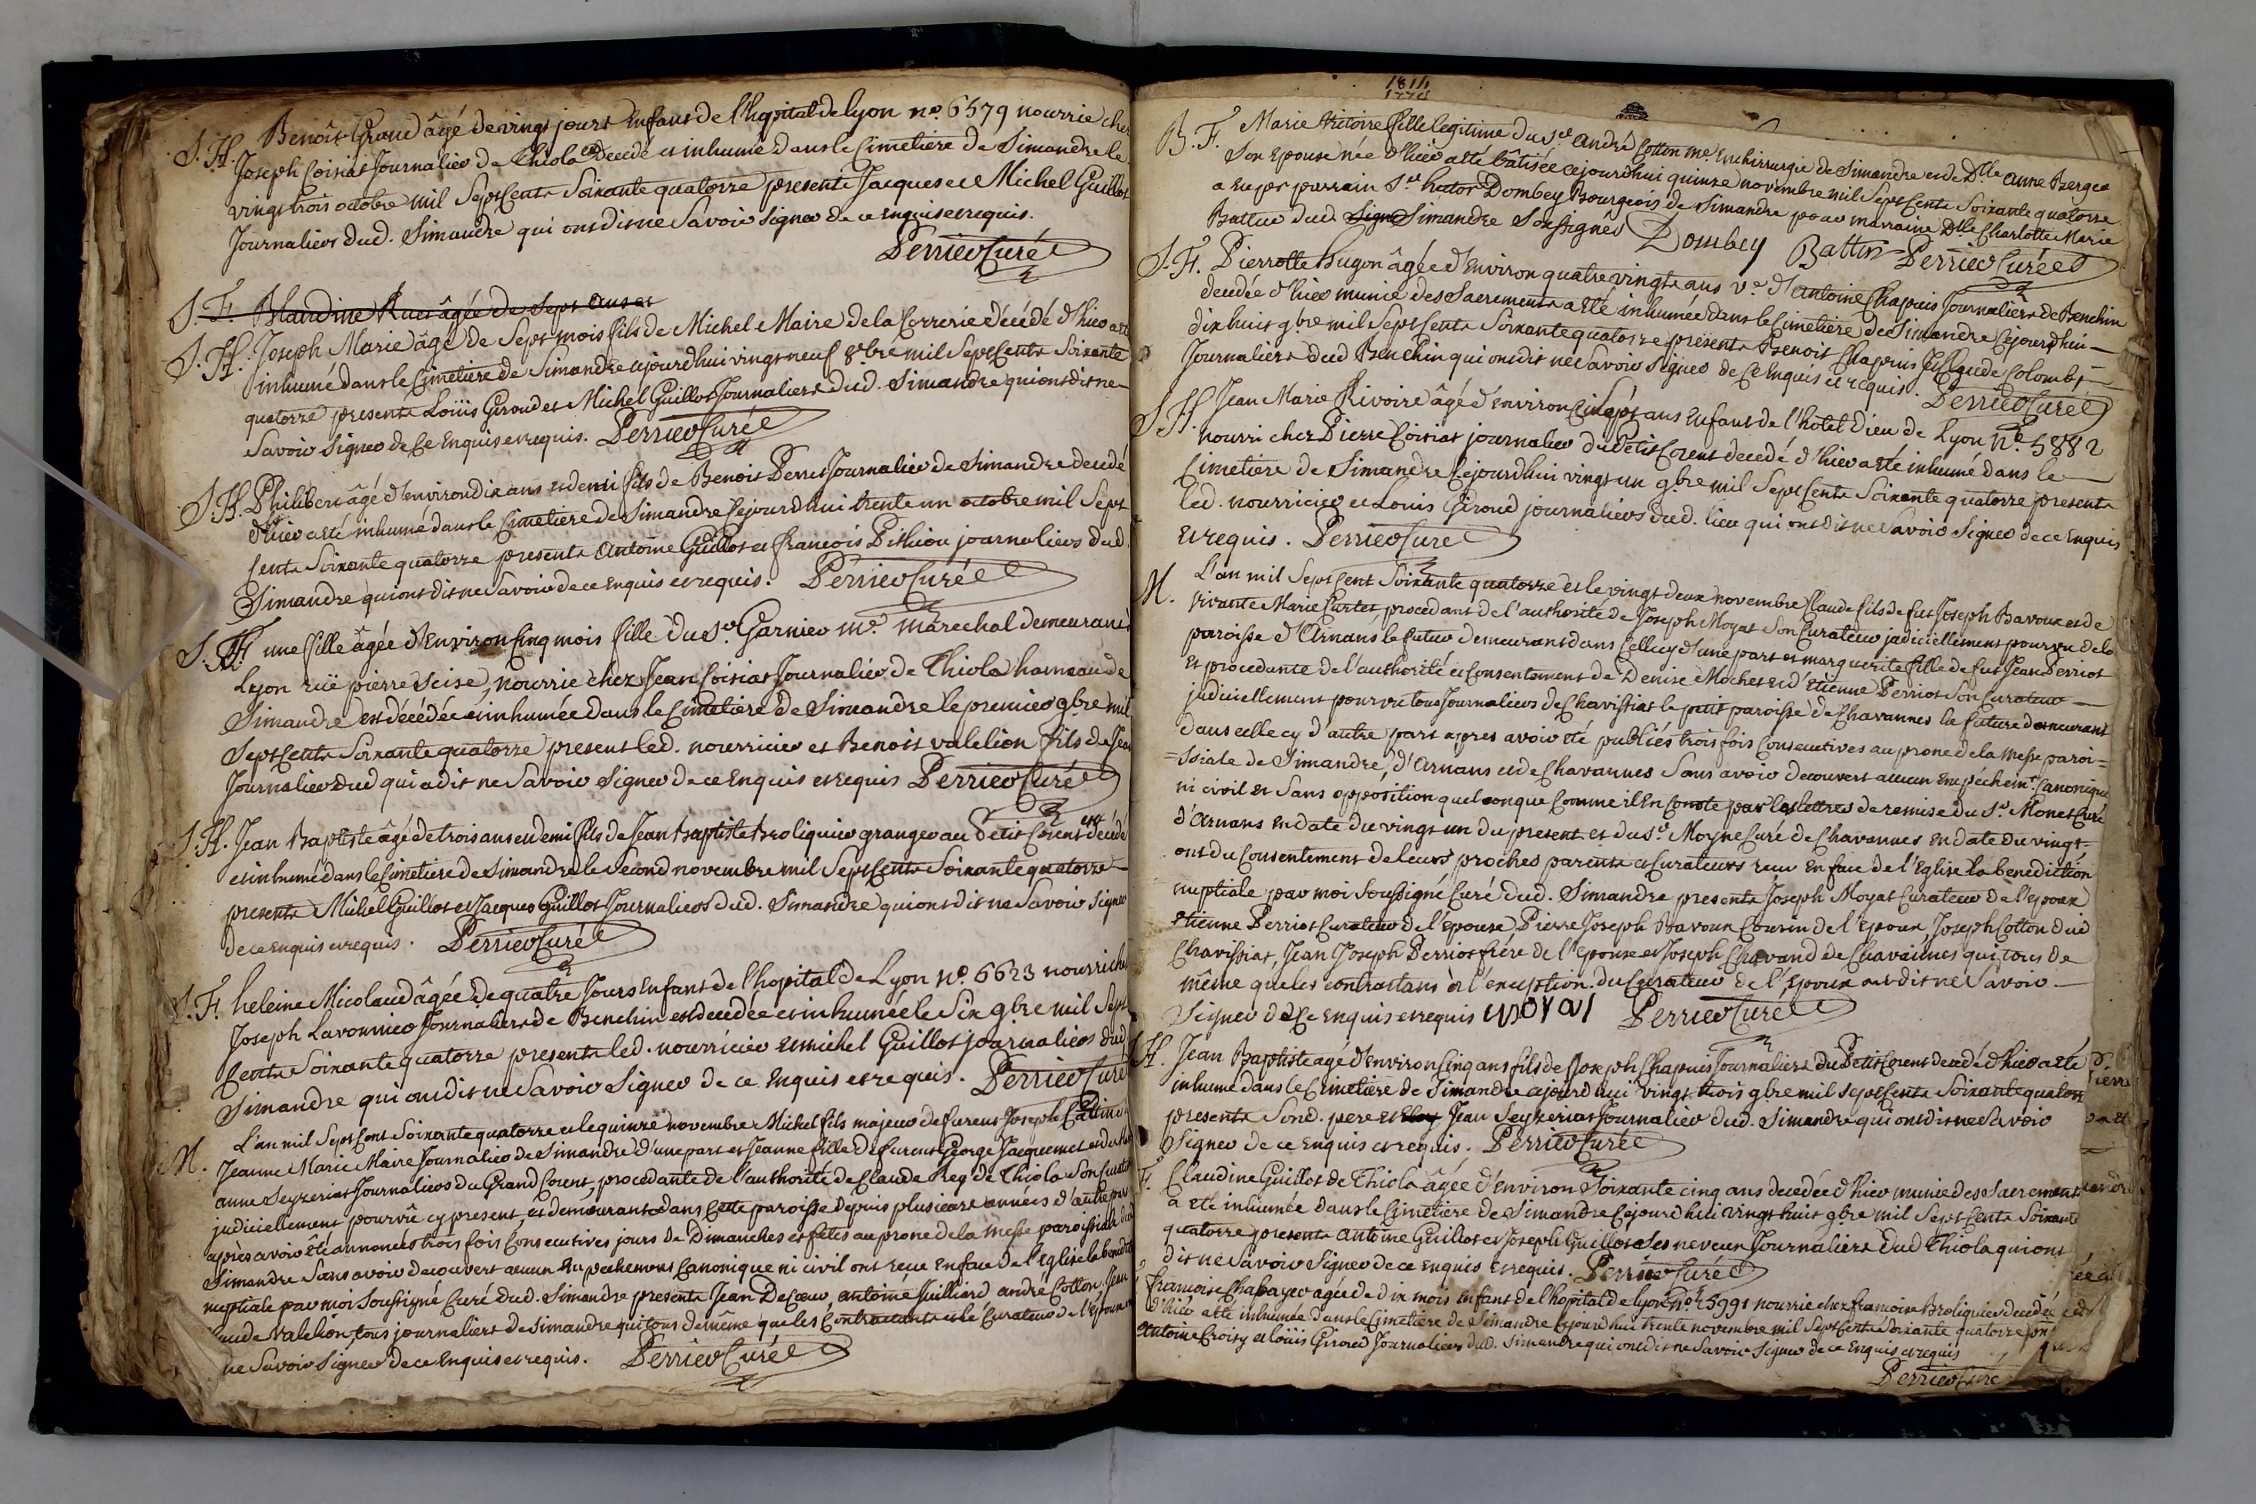 S. H. Benoît Giraud âgé de vingt jours Enfant de l'hopital de lyon no. 6579 nourrie chez
Joseph Coisiat Journalier de Thiola Decedé et inhumé dans le Cimetiere de Simandre le
vingt trois octobre mil Sept Cents Soixante quatorze presents Jacques et Michel Guillot
Journaliers dud. Simandre qui ont dit ne Savoir signer de ce Enquis et requis.
Perrier Curé
S. F. Blandine Ruet âgée de Sept ans et
S. H. Joseph Marie âgé de Sept mois fils de Michel Maire de la Correrie décédé d'hier a été
inhumé dans le Cimetiere de Simandre cejourdhui vingt neuf 8bre mil Sept Cents Soixante
quatorze presents Loüis Giroud et Michel Guillot Journaliers dud. Simandre qui ont dit ne
Savoir Signer de Ce Enquis et requis. Perrier Curé
S. H. Philibert âgé d'environ dix ans et demi fils de Benoit Perret Journalier de Simandre decedé
d'hier a été inhumé dans le Cimetiere de Simandre Cejourd'hui trente un octobre mil Sept
Cents Soixante quatorze presents Antoine Guillot et francois Pithiou journaliers dud.
Simandre qui ont dit ne Savoir de ce Enquis et requis. Perrier Curé
S. F. une fille âgée d'Environ Cinq mois fille du Sr. Garnier me. marechal demeurant à
Lyon rüe pierre Scise, nourrie chez Jean Coisiat Journalier de Thiola hameau de
Simandre est décédée et inhumée dans le Cimetiere de Simandre le premier 9bre mil
Sept Cents Soixante quatorze present led. nourricier et Benoit valelion fils de Jean
Journalier dud qui a dit ne Savoir Signer de ce Enquis et requis Perrier Curé
S. H. Jean Baptiste âgé de trois ans et demi fils de Jean Baptiste Broliquier granger au Petit Corent est decedé
et inhumé dans le Cimetiere de Simandre le Second novembre mil Sept Cents Soixante quatorze
presents Michel Guillot et Jacques Guillot Journaliers dud. Simandre qui ont dit ne Savoir Signer
de ce Enquis et requis. Perrier Curé
S. F. heleine Nicolaud âgée de quatre Jours Enfant de l'hopital de Lyon No. 6623 nourrie chez
Joseph Lavonnier Journalier de Benchin est decédée et inhumée le Six 9bre mil Sept
Cents Soixante quatorze presents led. nourricier et michel Guillot journaliers dud
Simandre qui ont dit ne Savoir Signer de ce Enquis et requis. Perrier Curé
M. L'an mil Sept Cent Soixante quatorze et le quinze novembre Michel fils majeur de furent Joseph
Jeanne Marie Maire Journalier de Simandre d'une part et Jeanne fille de furent George Jacquemet et de
anne Seyzeriat Journaliers du Grand Corent, procedante de l'authorité de Claude Rey de Thiola Son
judiciellement pourvû cy present, et demeurante dans Cette paroisse depuis plusieurs années d'autre part
après avoir été annoncés trois fois Consecutives jours de Dimanches et fêtes au prone de la Messe paroissiale
Simandre Sans avoir decouvert aucun Empechement Canonique ni civil ont recue En face de l'Eglise la
nuptiale par moi Soussigné Curé dud. Simandre presents Jean DeCœur, antoine Juilliard andré Cotton, Jean
Claude Valelion, tous journaliers de Simandre qui tous de même que les Contractants et le Curateur de l'Epouse
ne Savoir Signer de ce Enquis et requis. Perrier Curé
1774
B. F. Marie Victoire fille legitime du Sr. andré Cotton me. En chirurgie de Simandre et de Dlle. anne Berger
Son Epouse née d'hier a été bâtisée cejourdhui quinze novembre mil Sept Cents Soixante quatorze
a Eu pr parrain Sr. hector Dombey Bourgeois de Simandre pour marraine Dlle Charlotte Marie
Battin dud. Simandre Soussignés Dombey Battin Perrier Curé
S. F. Pierrotte Hugon âgée d'Environ quatre vingts ans Ve. d'Antoine Chapuis Journaliers de Benchin
decedée d'hier munie des Sacrements a été inhumée dans le Cimetiere de Simandre Cejourdhui
dix huit 9bre mil Sept Cents Soixante quatorze presents Benoit Chapuis Claude Colomb
Journaliers dud Benchin qui ont dit ne Savoir Signer de Ce Enquis et requis. Perrier Curé
S. H. Jean Marie Rivoire âgé d'environ Cinq ans Enfant de l'hotel Dieu de Lyon No. 5882
nourri chez Pierre Coisiat journalier du Petit Corent decedé d'hier a été inhumé dans le
Cimetiere de Simandre Cejourdhui vingt un 9bre mil Sept Cents Soixante quatorze presents
led. nourricier et Louis Giroud journaliers dud. lieu qui ont dit ne Savoir Signer de ce Enquis
et requis. Perrier Curé
M. L'an mil Sept Cent Soixante quatorze et le vingt deux novembre Claude fils de fut Joseph Bavoux et de
vivante Marie Curtet procedant de l'authorité de Joseph Moyat Son Curateur judiciellement pourvu de la
paroisse d'Arnans le futur demeurant dans Celle cy d'une part et marguerite fille de fut Jean Perriot
et procedante de l'authorité et Consentement de Denise Mochet et d'etienne Perriot Son Curateur
judiciellement pourvu tous Journaliers de Chavissiat le petit paroisse de Chavannes la future demeurant
dans celle cy d'autre part apres avoir été publiés trois fois Consecutives au prone de la Messe paroi=
=ssiale de Simandre, d'Arnans et de Chavannes Sans avoir decouvert aucun Empechemt. Canonique
ni civil et Sans opposition quelconque Comme il En Conste par les lettres de remise du Sr. Monet Curé
d'Arnans En date du vingt un du present et du Sr. Moyne Curé de Chavannes En date du vingt
ont du Consentement de leurs proches parents et Curateurs reçu En face de l'Eglise la benediction
nuptiale par moi Soussigné Curé dud. Simandre presents Joseph Moyat Curateur de l'epoux
etienne Perriot Curateur de l'epouse, Pierre Joseph Bavoux Cousin de l'epoux, Joseph Cotton dud
Chavissiat, Jean Joseph Perriot frère de l'epouse et Joseph Chavand de Chavannes qui tous de
même que les Contractans à l'exeption du Curateur de l'Epoux ont dit ne Savoir
Signer de Ce Enquis et requis moyat Perrier Curé
H. Jean Baptiste agé d'Environ Cinq ans fils de Joseph Chapuis Journaliers du Petit Corent decedé d'hier a été
inhumé dans le Cimetiere de Simandre cejourdhui vingt trois 9bre mil Sept Cents Soixante quatorze
presents Sond. pere et Jean Seyzeriat Journalier dud. Simandre qui ont dit ne Savoir
Signer de ce Enquis et requis. Perrier Curé
F. Claudine Guillot de Thiola âgée d'Environ Soixante cinq ans decedée d'hier munie des Sacrements
a été inhumée dans le Cimetiere de Simandre Cejourd'hui vingt huit 9bre mil Sept Cents Soixante
quatorze presents antoine Guillot et Joseph Guillot Ses neveux Journaliers dud Thiola qui ont
dit ne Savoir Signer de ce Enquis et requis. Perrier Curé
francoise Chabayer agée de dix mois Enfant de l'hopital de lyon No. 5991 nourrie chez francoise Broliquier decedée
d'hier a été inhumée dans le Cimetiere de Simandre Cejourdhui trente novembre mil Sept Cents Soixante quatorze
Antoine Croisy et Loüis Giroud Journaliers dud. Simandre qui ont dit ne Savoir Signer de ce Enquis et requis
Perrier Curé